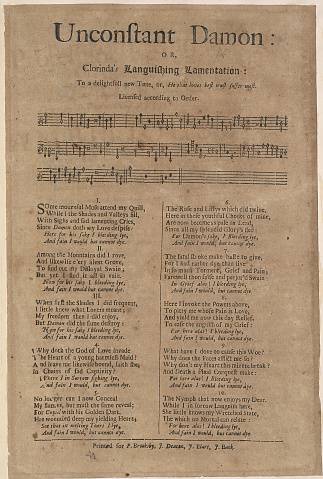 Unconstant Damon:
OR,
Clorinda's Languishing Lamentation:
To a delightfull new Tune, or, He that loves best must suffer most.
Licensed according to Order.
I.
SOme mournful Muse attend my Quill,
While I the Shades and Valleys fill,
With Sighs and sad lamenting Cries,
Since Damon doth my Love despise:
Here for his sake I bleeding lye,
And fain I would but cannot dye.
II.
Among the Mountains did I rove,
And likewise e'ry silent Grove,
To find out my Disloyal Swain;
But yet I find it all in vain.
Now for his sake I bleeding lye,
And fain I would but cannot dye.
III.
When first the Shades I did frequent,
I little knew what Loves meant;
My freedom then I did enjoy,
But Damon did the same destroy:
Now for his sake I bleeding lye,
And fain I would, but cannot dye.
Why doth the God of Love invade
The Heart of a young harmless Maid?
And leave me likewise bound, faith she,
In Chains of sad Captivity?
There in Sorrow sighing lye,
And fain I would, but cannot dye.
No longer can I now Conceal
My but must the same reveal;
For Cupid with his Golden Dart,
Has wounded deep my yielding Heart;
So that in melting Tears I lye,
And fain I would, but cannot dye.
6.
The Rose and Lillys which did twine,
Here in these youthful Cheeks of mine,
Are now become as pale as Lead,
Since all my blissful Glory's fled:
For Damon's sake, I bleeding lye,
And fain I would, but cannot dye.
7.
The fatal stroke make haste to give,
For I had rather dye than live
In so much Torment, Grief and Pain;
Farewell then false and perjur'd Swain
In Grief alas! I bleeding lye,
And fain I would, but cannot dye.
8.
Here I invoke the Powers above,
To pitty me whose Pain is Love,
And yield me now this day Relief,
To ease the anguish of my Grief:
For here alas! I bleeding lye,
And fain I would, but cannot dye.
9.
What have I done to cause this Woe?
Why does the Fates afflict me so?
Why don't my Heart this minute break?
And Death a final Conquest make:
For here alas! I bleeding lye,
And fain I would, but cannot dye.
10.
The Nymph that now enjoys my Dear,
While I in sorrow languish here,
She little knows my Wretched State,
The which no Mortal can relate:
For here alas! I bleeding lye,
And fain I would, but cannot dye.
Printed for P. Brooksby, J. Deacon, J. Blare, J. Back.